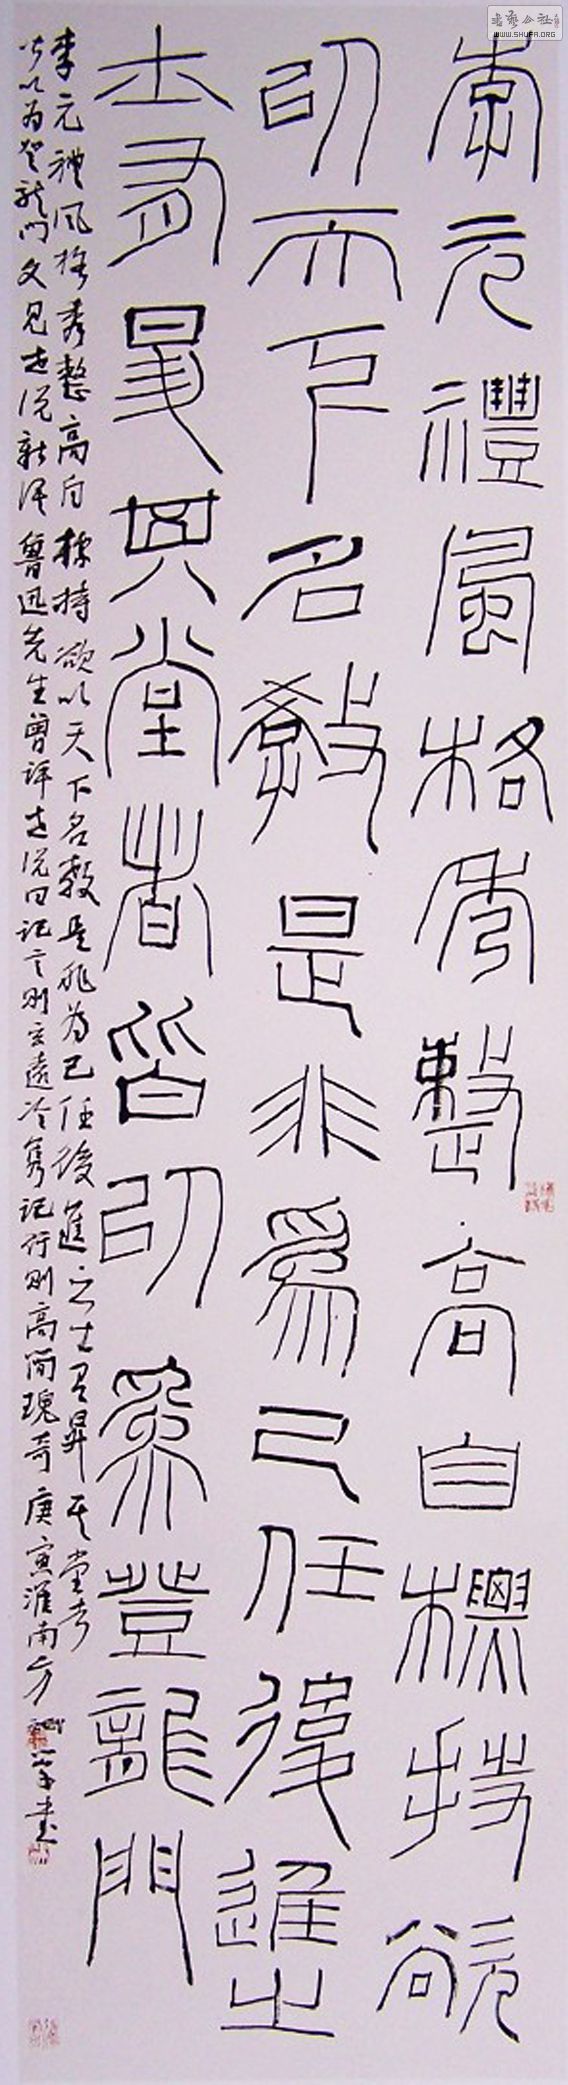 李元禮風格秀整高自標持欲
以天下名教是非為己任後進之
士有昇其堂者皆以為登龍門
李元禮風格秀整高自標持欲以天下名教是非為己任後進之士有昇其堂者
皆以為登龍門文見世说新语鲁迅先生曾评世说曰记言则玄遠冷隽记行则高简瑰奇庚寅淮南方
書
書藝公社
WWW.SHUFA.ORG